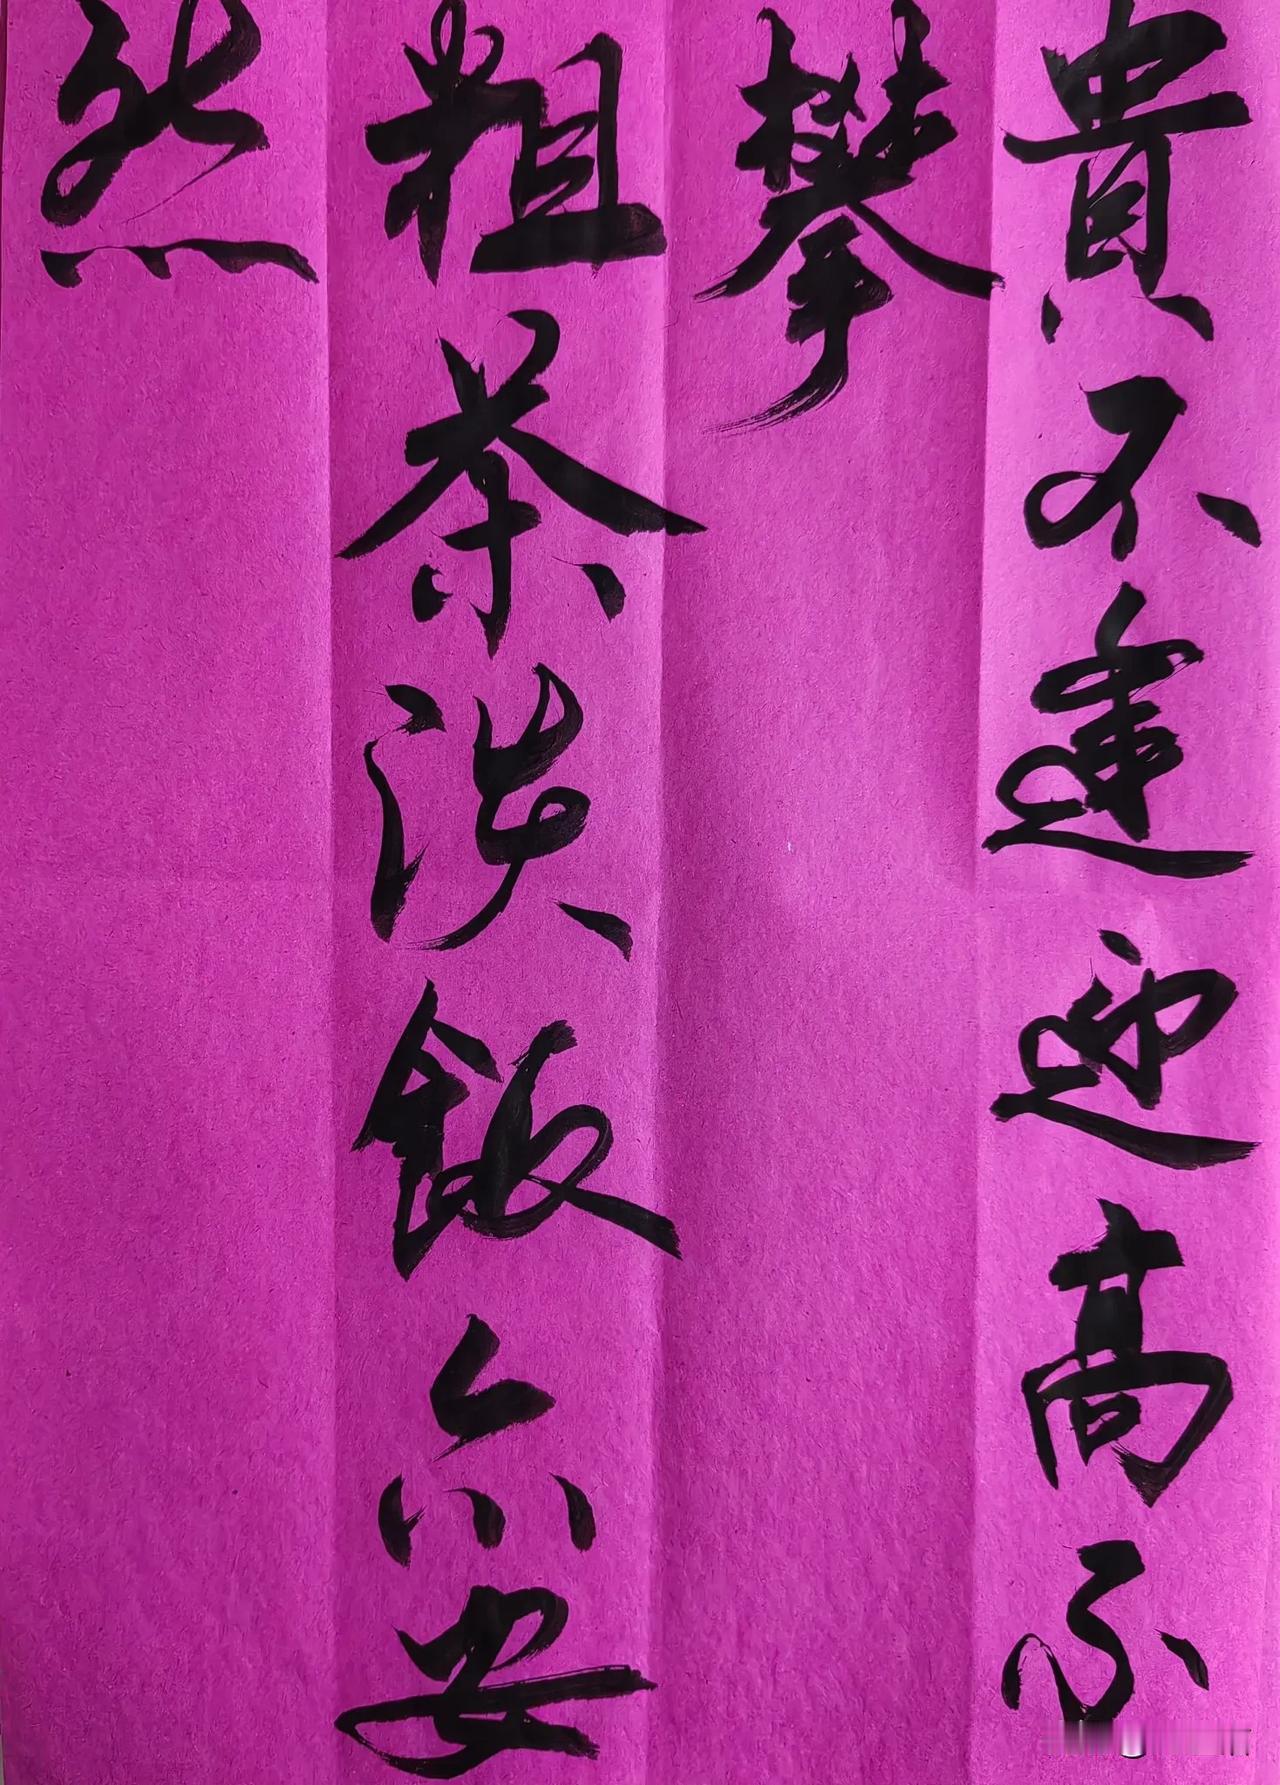 貴不逢迎高不
攀
粗茶淡飯亦安
然